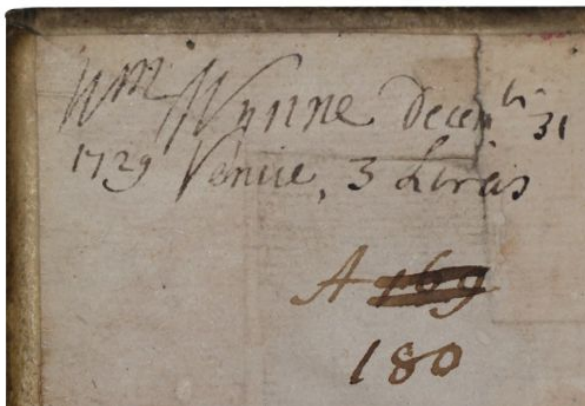 Wm Wynne Decembr 31
1729 Venice, 3 Livres
A 169
180